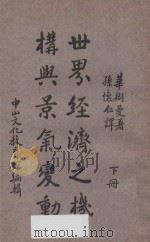 曼著
孫懷仁譯
下冊
世界經濟之機
構與景氣變動
中山文化教育館編輯